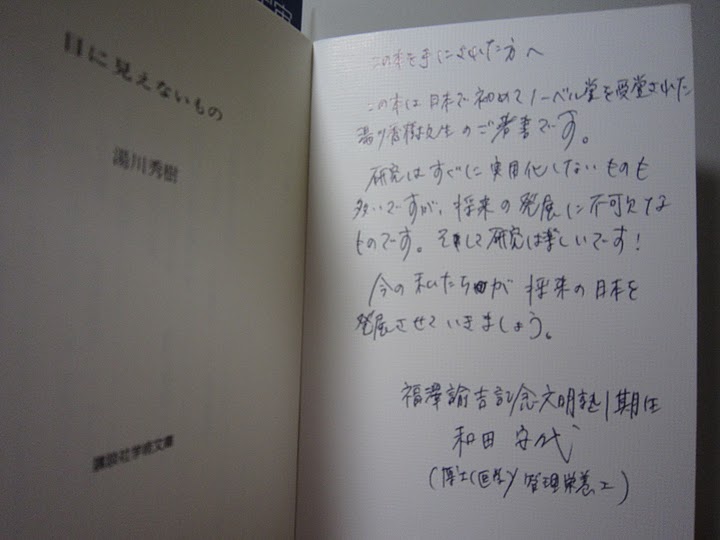 目に見えないもの
湯川秀樹
講談社学術文庫
この本を手にされた方へ
この本は日本で初めてノーベル賞を受賞された
湯川秀樹先生のご著書です。
研究はすぐに実用化しないものも
多いですが、将来の発展に不可欠な
ものです。そして研究は楽しいです!
今の私たちが将来の日本を
発展させていきましょう。
福澤諭吉記念文明塾1期生
和田安代
(博士(医学)管理栄養士)